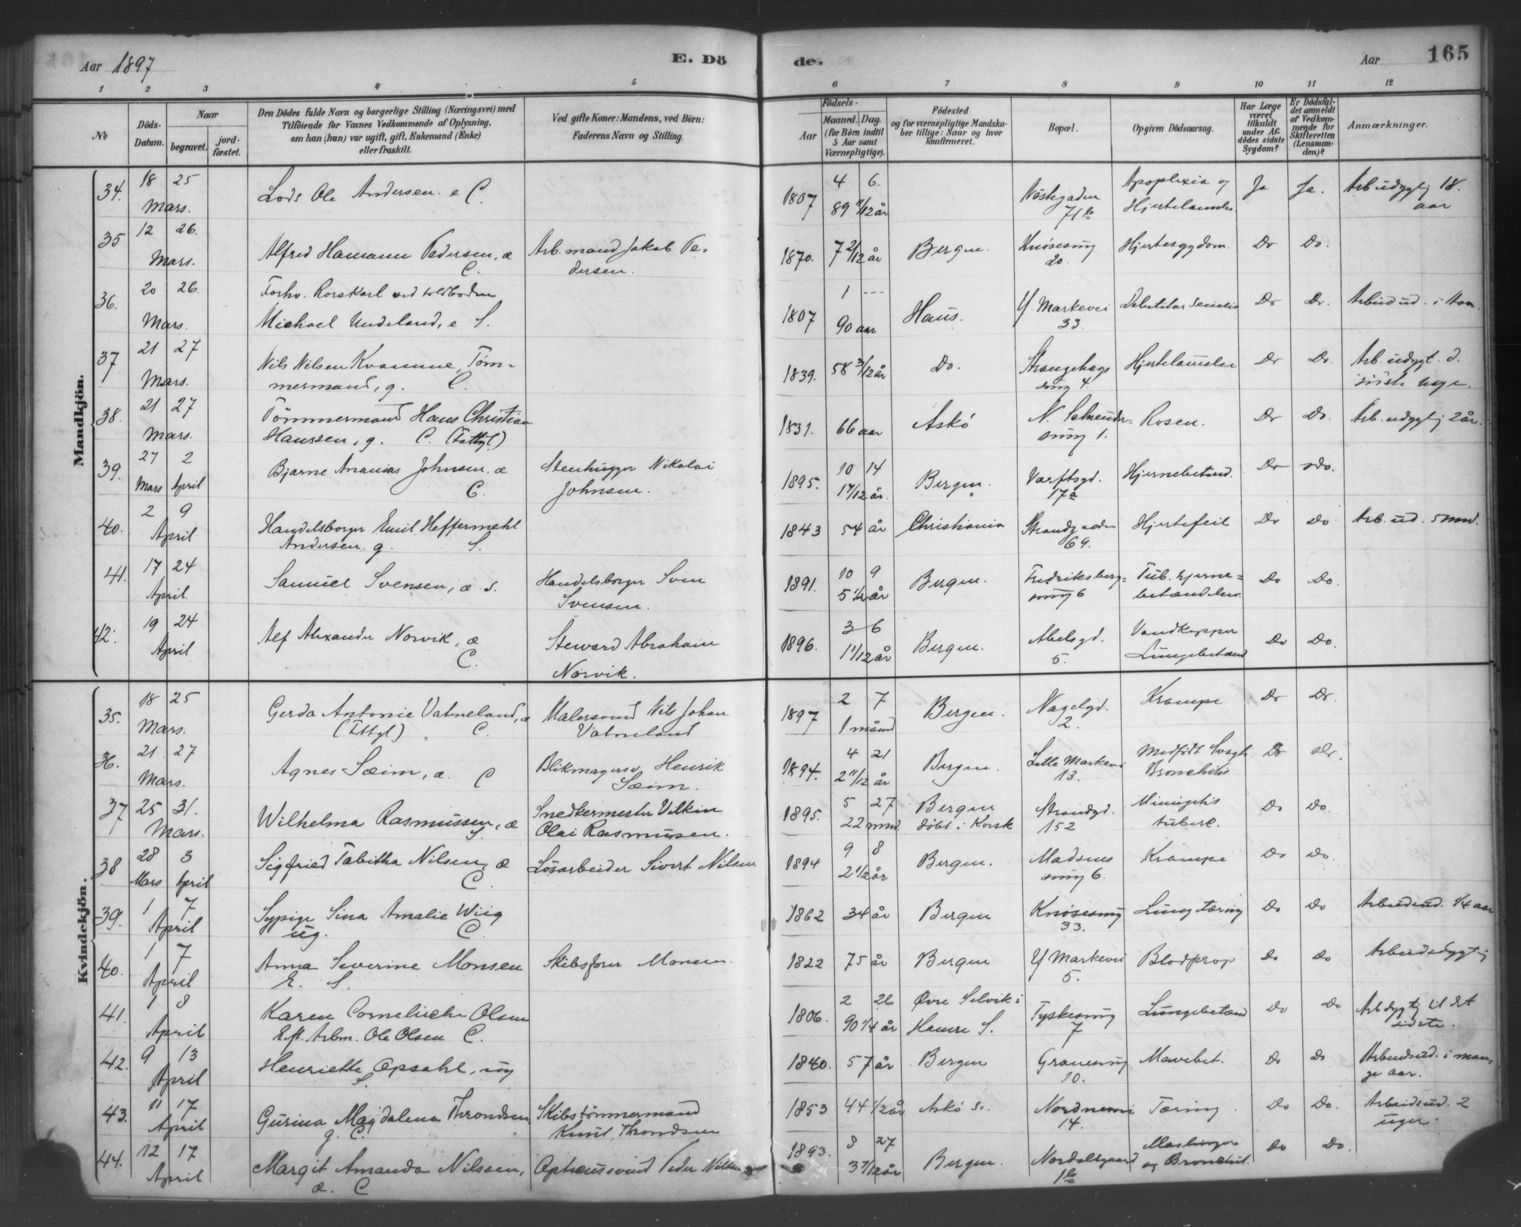 Aar 1897
E. Dö
de.
Aar
165
1 2 3 4 5 6 7 8 9 10 11 12
№
Döds-Datum.
Naar
begravet.
jord-fæstet.
Den Dödes fulde Navn og borgerlige Stilling (Næringsvei) med
Tilföiende for Voxnes Vedkommende af Oplysning,
om han (hun) var ugift, gift, Enkemand (Enke)
eller fraskilt.
Ved gifte Koner: Mandens, ved Börn:
Faderens Navn og Stilling.
Födsels-
Aar
Maaned. Dag.
(for Börn indtil
5 Aar samt
Værnepligtige).
Födested
og for værnepligtige Mandska-
ber tillige: Naar og hvor
konfirmeret.
Bopæl.
Opgiven Dödsaarsag.
Har Læge
været
tilkaldt
under Af-
dödes sidste
Sygdom?
Er Dödsfal-
det anmeldt
af Vedkom-
mende for
Skifteretten
(Lensman-
den)?
Anmærkninger.
Mandkjön.
34. 18 25 Mars. Lods Ole Andersen. e C. 1807 4 6. 89 11/12 år 71 b Apoplexia og Ja Ja. Arb udygtig 18. aar
35 12 26. Mars. Alfred Hamann Pedersen, æ C. Arb. mand Jakob Pedersen. 1870. 7 2/12 år Bergen. Knösesmug 20. Hjertesygdom. Do Do.
36. 20 26. Mars. Forhv. Rorskarl ved toldboden Michael Undeland, e S. 1807 1 --- 90 aar Haus. Y Markevei 33 Debilitas senilis Do Do.
37 21 27 Mars. Nils Nilsen Kvamme, Tömmermand, g. C. 1839. 58 3/12 år Do. Strangehagsmug 4 Hjertelamelse Do Do. Arb. udygt. d. sidste uge.
38. 21 27 Mars. Tömmermand Hans Christian Hanssen, g. C. (Fattgl) 1831. 66 aar Askö smug 1. Rosen. Do Do. Arb. udygtig 2 år.
39. 27 2 Mars April Bjarne Ananias Johnsen. æ C. Stenhugger Nikolai Johnsen. 1895. 10 14 1 7/12 år. Bergen. Værftsgd. 17a Hjernebetænd. Do Do.
40. 2 9 April Handelsborger Emil Heffermehl Andersen, g. S. 1843 54 år Christiania Strandgaden 69. Hjertefeil Do Do Arb. ud. 5 mnd.
41. 17 24 April Samuel Svensen, æ. S. Handelsborger Sven Svensen. 1891. 10 9 5 1/2 år Bergen. Fredriksbergsmug 6 Tub. hjernebetændelse. Do Do.
42. 19 24 April Alf Alexander Norvik, æ C. Steward Abraham Norvik. 1896. 3 6 1 1/12 år Bergen. Abelsgd. 5. Vandkopper Lungebetænd Do Do.
Kvindekjön.
35. 18 25 Mars. Gerda Antonie Vatneland, æ (Fttgl) C. Malersvend Nils Johan Vatneland 1897 2 7 1 måned Bergen. Nagelgd. 2. Krampe Do Do.
36. 21 27 Mars. Agnes Sæim, æ. C Blikmagersv. Henrik Sæim. 1894. 4 21 2 11/12 år Bergen. Lille Markevei 13. Medfødt Svagh. Bronchitis Do Do.
37 25 31. Mars. Wilhelma Rasmussen, æ Snedkermester Vilkin Olai Rasmussen. 1895. 5 27 22 mnd Bergen döbt i Korsk Strandgd. 152 Miningitis tuberc. Do Do.
38 28 3 Mars April Sigfried Tabitha Nilsen, æ C. Lösarbeider Sivert Nilsen 1894 9 8 2 1/2 år Bergen. Madsensmug 6. Krampe Do Do.
39. 1 7 April Sypige Sina Amalie Wiig ug. C. 1862 34 år Bergen Knösesmug 33. Lungetæring Do Do Arbeidsud. 1/4 aar
40. 1 7 April Anna Severine Monsen E. S. Skibsförer Monsen 1822 75 år Bergen Y Markevei 5. Blodprop Do Do Arbeidsdygtig
41. 1 8 April Karen Cornelische Olsen Eft. Arbm. Ole Olsen C. 1806. 2 26 90 1/4 år Övre Selvik i Hamre S. Tyskesmug 7 Lungebetænd Do Do Arbdygtig til det sidste.
42. 9 13 April Henriette Opsahl, ug S. 1840. 57 år Bergen Grönesmug 10. Mavebet. Do Do Arbeidsud. i mange aar.
43. 11 17 April Gurina Magdalena Throndsen g. C. Skibstömmermand Knut Throndsen 1853 44 1/2 år Askö S. Nordneveien 14. Tæring Do Do. Arbeidsud. 2 uger.
44. 12 17 April Margit Amanda Nilssen, æ. C Peder Nilsen 1893. 8 27 3 7/12 år Bergen. Meslinger og Bronchit. Do Do.